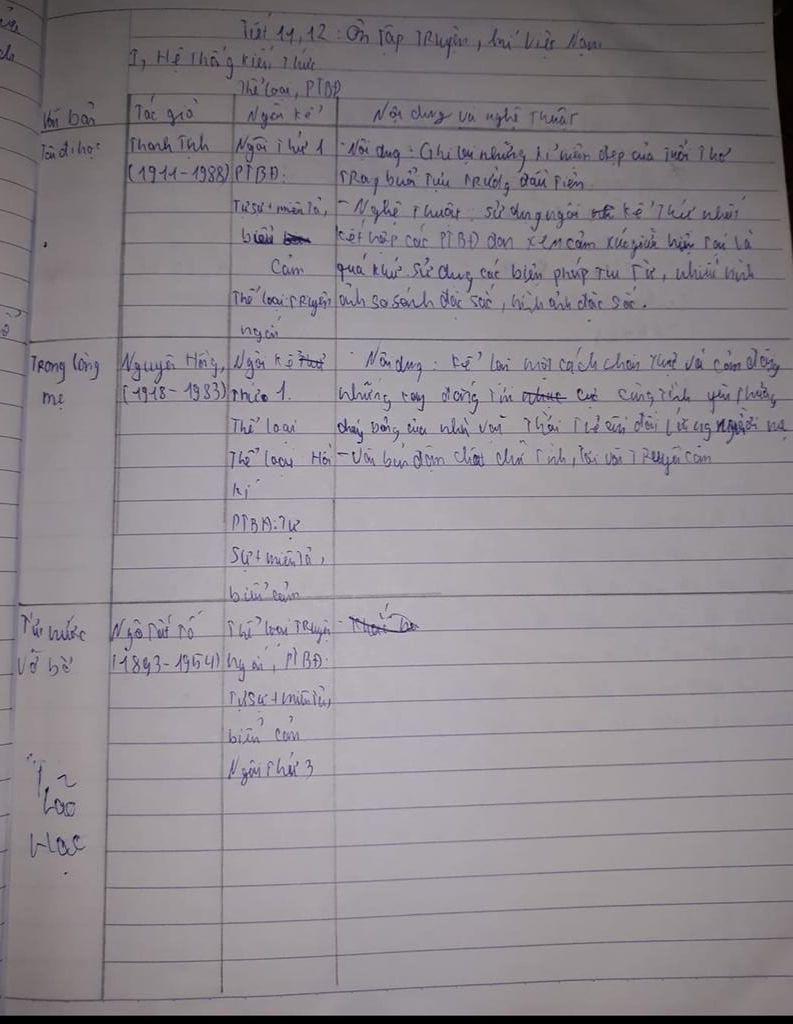 Tiết 11, 12: Ôn Tập Truyện, kí Việt Nam
I, Hệ thống kiến thức
Văn bản
Tác giả
Thể loại, PTBĐ
Ngôi kể
Nội dung và nghệ thuật
Tôi đi học
Thanh Tịnh
(1911-1988)
Ngôi thứ 1
PTBĐ:
Tự sự + miêu tả,
biểu
Cảm
Thể loại: Truyện
ngắn
- Nội dung: Ghi lại những kỉ niệm đẹp của tuổi thơ
trong buổi tựu trường đầu tiên
- Nghệ thuật: sử dụng ngôi kể thứ nhất
kết hợp các PTBĐ đan xen cảm xúc giữa hiện tại là
quá khứ. Sử dụng các biện pháp tu từ, nhiều hình
ảnh so sánh đặc sắc, hình ảnh đặc sắc.
Trong lòng
mẹ
Nguyên Hồng,
(1918-1983)
Ngôi kể
thứ 1.
Thể loại
Thể loại Hồi
kí
PTBĐ: Tự
sự + miêu tả,
biểu cảm
Nội dung: Kể lại một cách chân thực và cảm động
những cay đắng cùng tình yêu thương
cháy bỏng của nhà văn thời thơ ấu đối với người mẹ
- Văn bản đậm chất chữ tình, lời văn truyền cảm
Tức nước
vỡ bờ
Ngô Tất Tố
(1893-1954)
Thể loại Truyện
ngắn, PTBĐ:
Tự sự + miêu tả,
biểu cảm
Ngôi thứ 3
Lão
Hạc